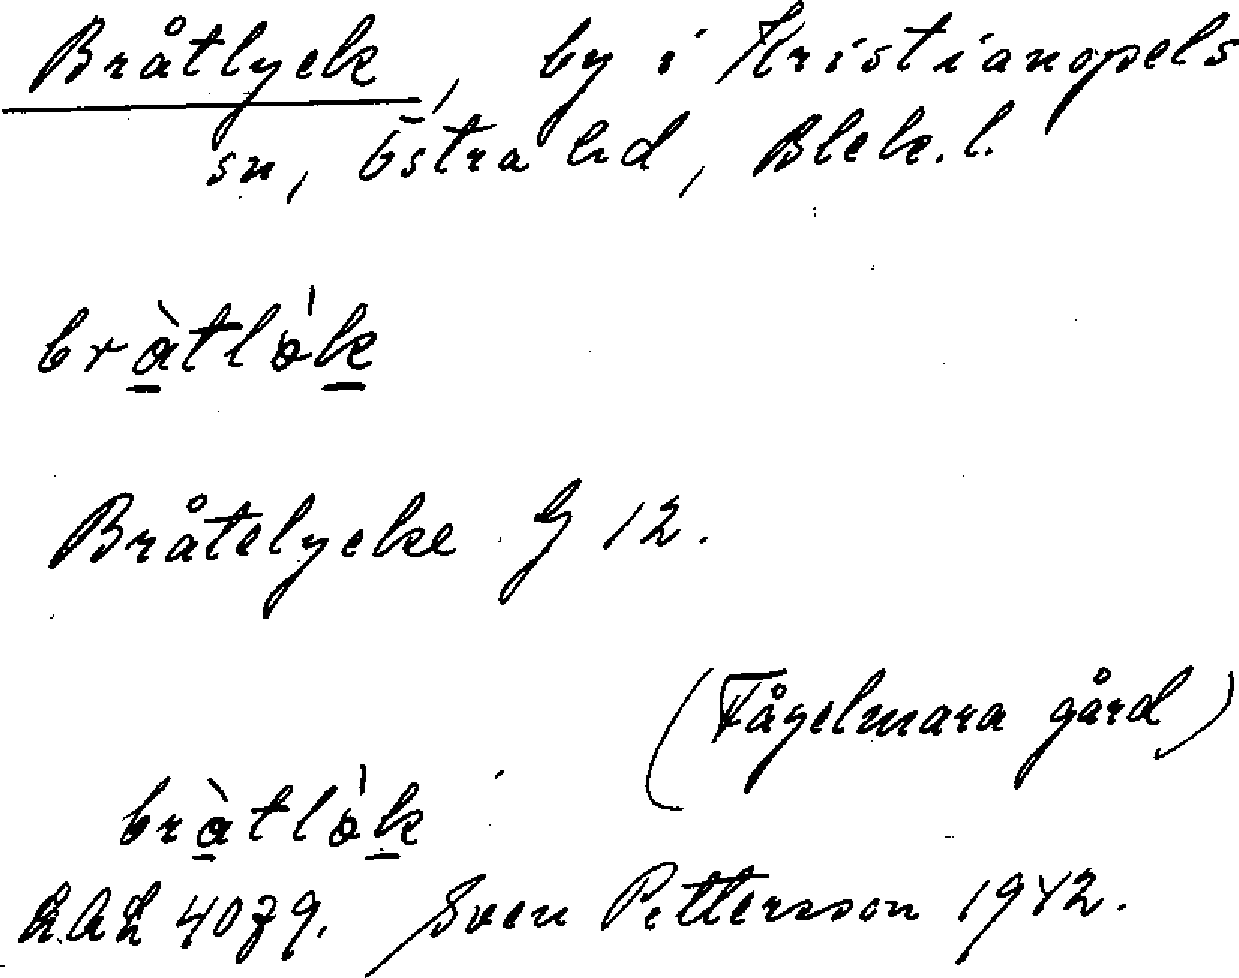 Bråtlyck, by i Kristianopels
sn, Östra hd, Blek. l.
bràtlök
Bråtelycke G 12.
(Fågelmara gård)
bràtlök
LAL 4079. Sven Pettersson 1942.